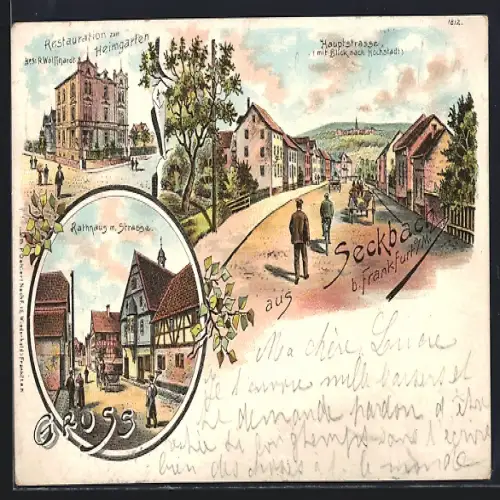 1812.
Restauration zum
Heimgarten
Bes: R. Wolffhardt
Hauptstrasse
(mit Blick nach Hochstadt)
Rathhaus m. Strasse.
GRUSS
aus
Seckbach
b. Frankfurt a/M.
Ma chère Louise
Je t'envoie mille baisers et
te demande pardon d'être
restée si longtemps sans t'écrire
bien des choses à t. le monde